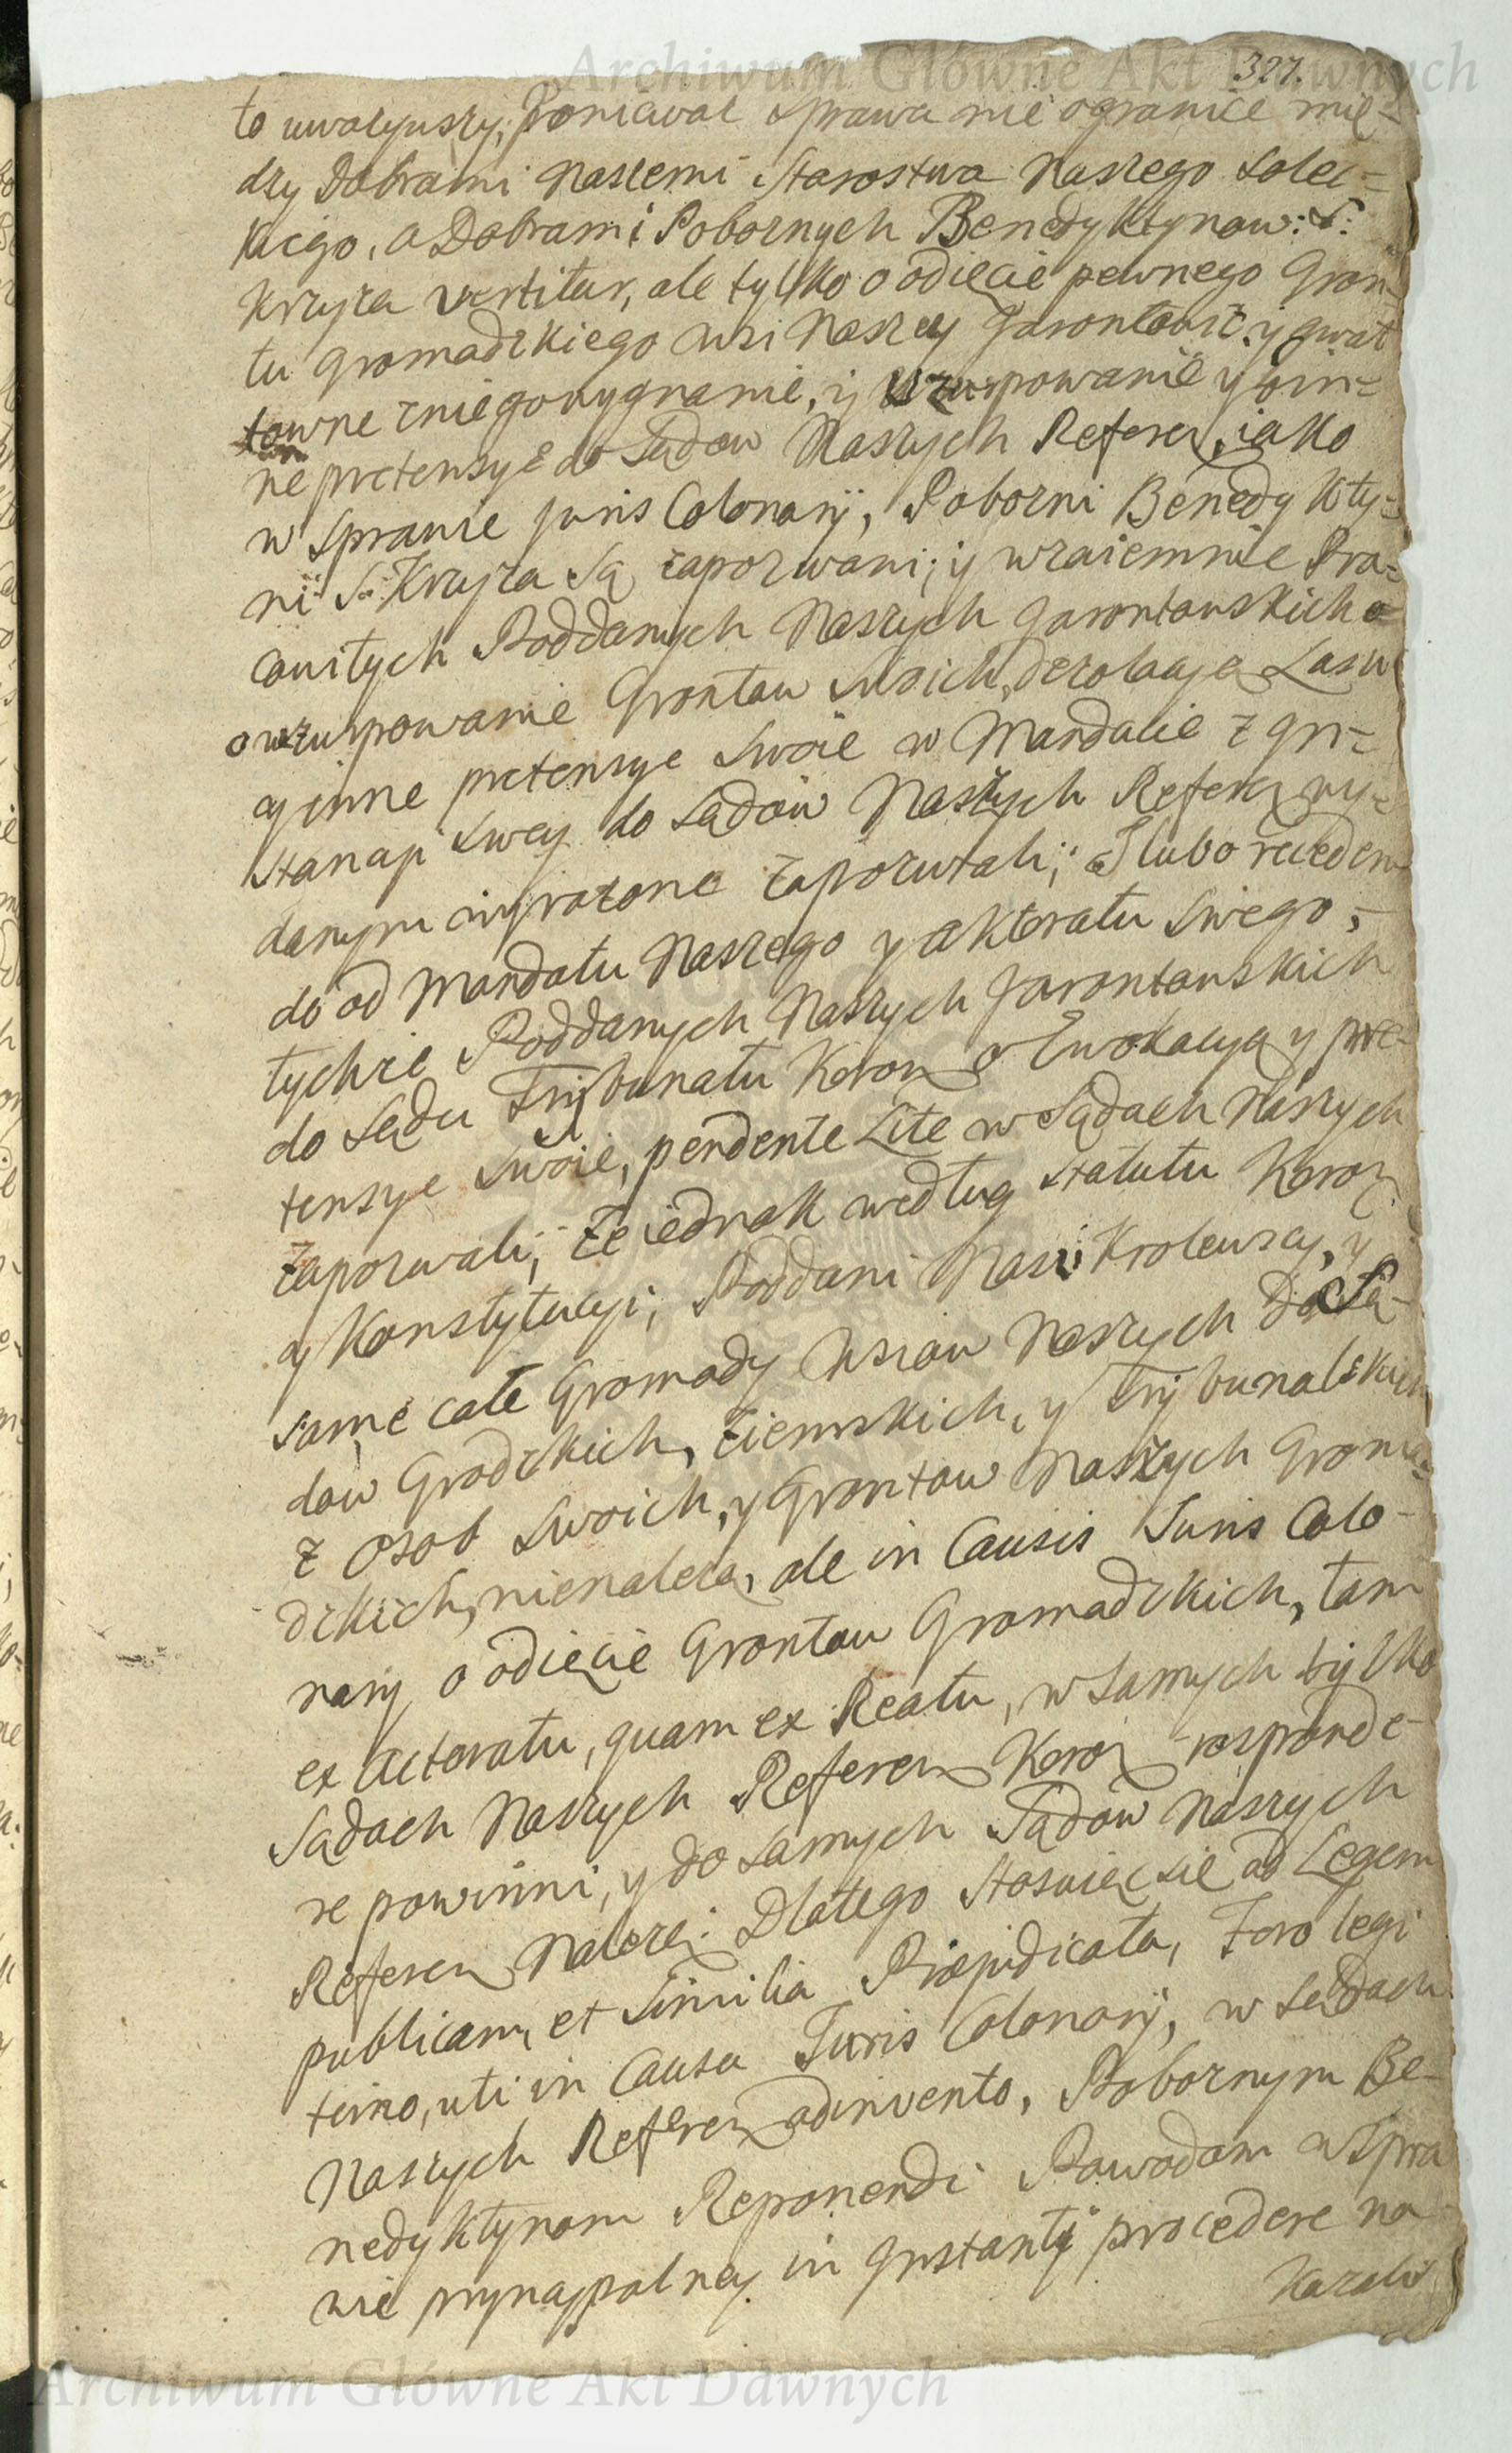 Archiwum Główne Akt Dawnych
327.
to uwazywszy, Poniewaz sprawa nie ogranice mię=
dzy Dobrami Naszemi Starostwa Naszego Solec=
kiego, a Dobrami Poboznych Benedyktynow: S:
Krzyza vertitur, ale tylko o odięcie pewnego Gron=
tu gromadzkiego wsi Naszey Jarontowic: y gwał
towne z niego wygnanie, y uzurpowanie y in=
ne pretensye do Sądow Naszych Referen, iako
w Sprawie juris Colonarij, Pobozni Benedykty=
ni S: Krzyza Są zapozwani; y wzaiemnie Pra=
cowitych Poddanych Naszych Jarontowskich o=
o uzurpowanie Grontow Swoich, dezolacyą Lasu
y inne pretensye Swoie w Mandacie z Jn=
stancyi Swey do Sądów Naszych Referen wy=
danym wyrazone zapozwali; Jlubo receden=
do od Mandatu Naszego y aktoratu Swego,
tychze Poddanych Naszych Jarontowskich
do Sądu Tryjbunału Koron o Ewokacyą y pre=
tensye Swoie, pendente Lite w Sądach Naszych
zapozwali; ze iednak według Statutu Koron
y Konstytucyi, Poddani Nasi Krolewscy, y
same całe Gromady Wsiow Naszych do Są=
dow Grodzkich, Ziemskich, y Tryjbunalskich
z Osob Swoich, y Grontow Naszych Groma=
dzkich, nienalezą, ale in Causis Juris Colo=
narij o odięcie Grontow Gromadzkich, tam
ex Actoratu, quam ex Reatu, w Samych tylko
Sądach Naszych Referen Koron rosponde=
re powinni, y do Samych Sądów Naszych
Referen Nalezą: Dlatego Stosuiąc sie ad Legem
publicam, et Similia Præjudicata, Foro legi
timo, uti in Causa Juris Colonarij, w Sądach
Naszych Referen adinvento, Poboznym Be=
nedyktynom Reponendi Powodom w Spra
wie prynajpalney in Jnstanti procedere na
kazali
Archiwum Główne Akt Dawnych